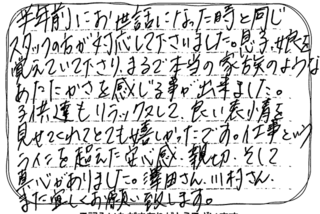 半年前にお世話になった時と同じ
スタッフの方が対応して下さいました。息子、娘を
覚えていて下さり、まるで本当の家族のような
あたたかさを感じる事が出来ました。
子供達もリラックスして、良い表情を
見せてくれてとても嬉しかったです。仕事という
ラインを超えた安心感、親切、そして
真心がありました。澤田さん、川村さん、
また宜しくお願い致します。